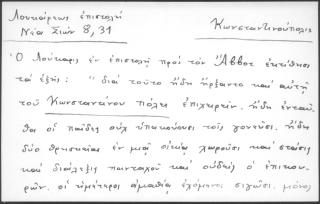 Λουκάρεως ἐπιστολή
Νέα Σιών 8, 31
Κωνσταντινούπολις
Ὁ Λούκαρις ἐν ἐπιστολῇ πρός τόν Ἄββοτ ἐκτίθησι
τά ἑξῆς: " διά τοῦτο ἤδη ἤρξαντο καί αὐτῇ
τοῦ Κωνσταντίνου πόλει ἐπιχειρεῖν. ἤδη ἐνταῦ-
θα οἱ παῖδες οὐχ ὑπακούουσι τοῖς γονεῦσι. ἤδη
δύο θρησκεῖαι ἐν μιᾷ οἰκίᾳ χωροῦσι καί στάσεις
καί διάλεξις πανταχοῦ καί οὐδείς ὁ ἐπικου-
ρῶν. οἱ ἡμέτεροι ἀμαθίᾳ ἐχόμενοι σιγῶσι. μόνος